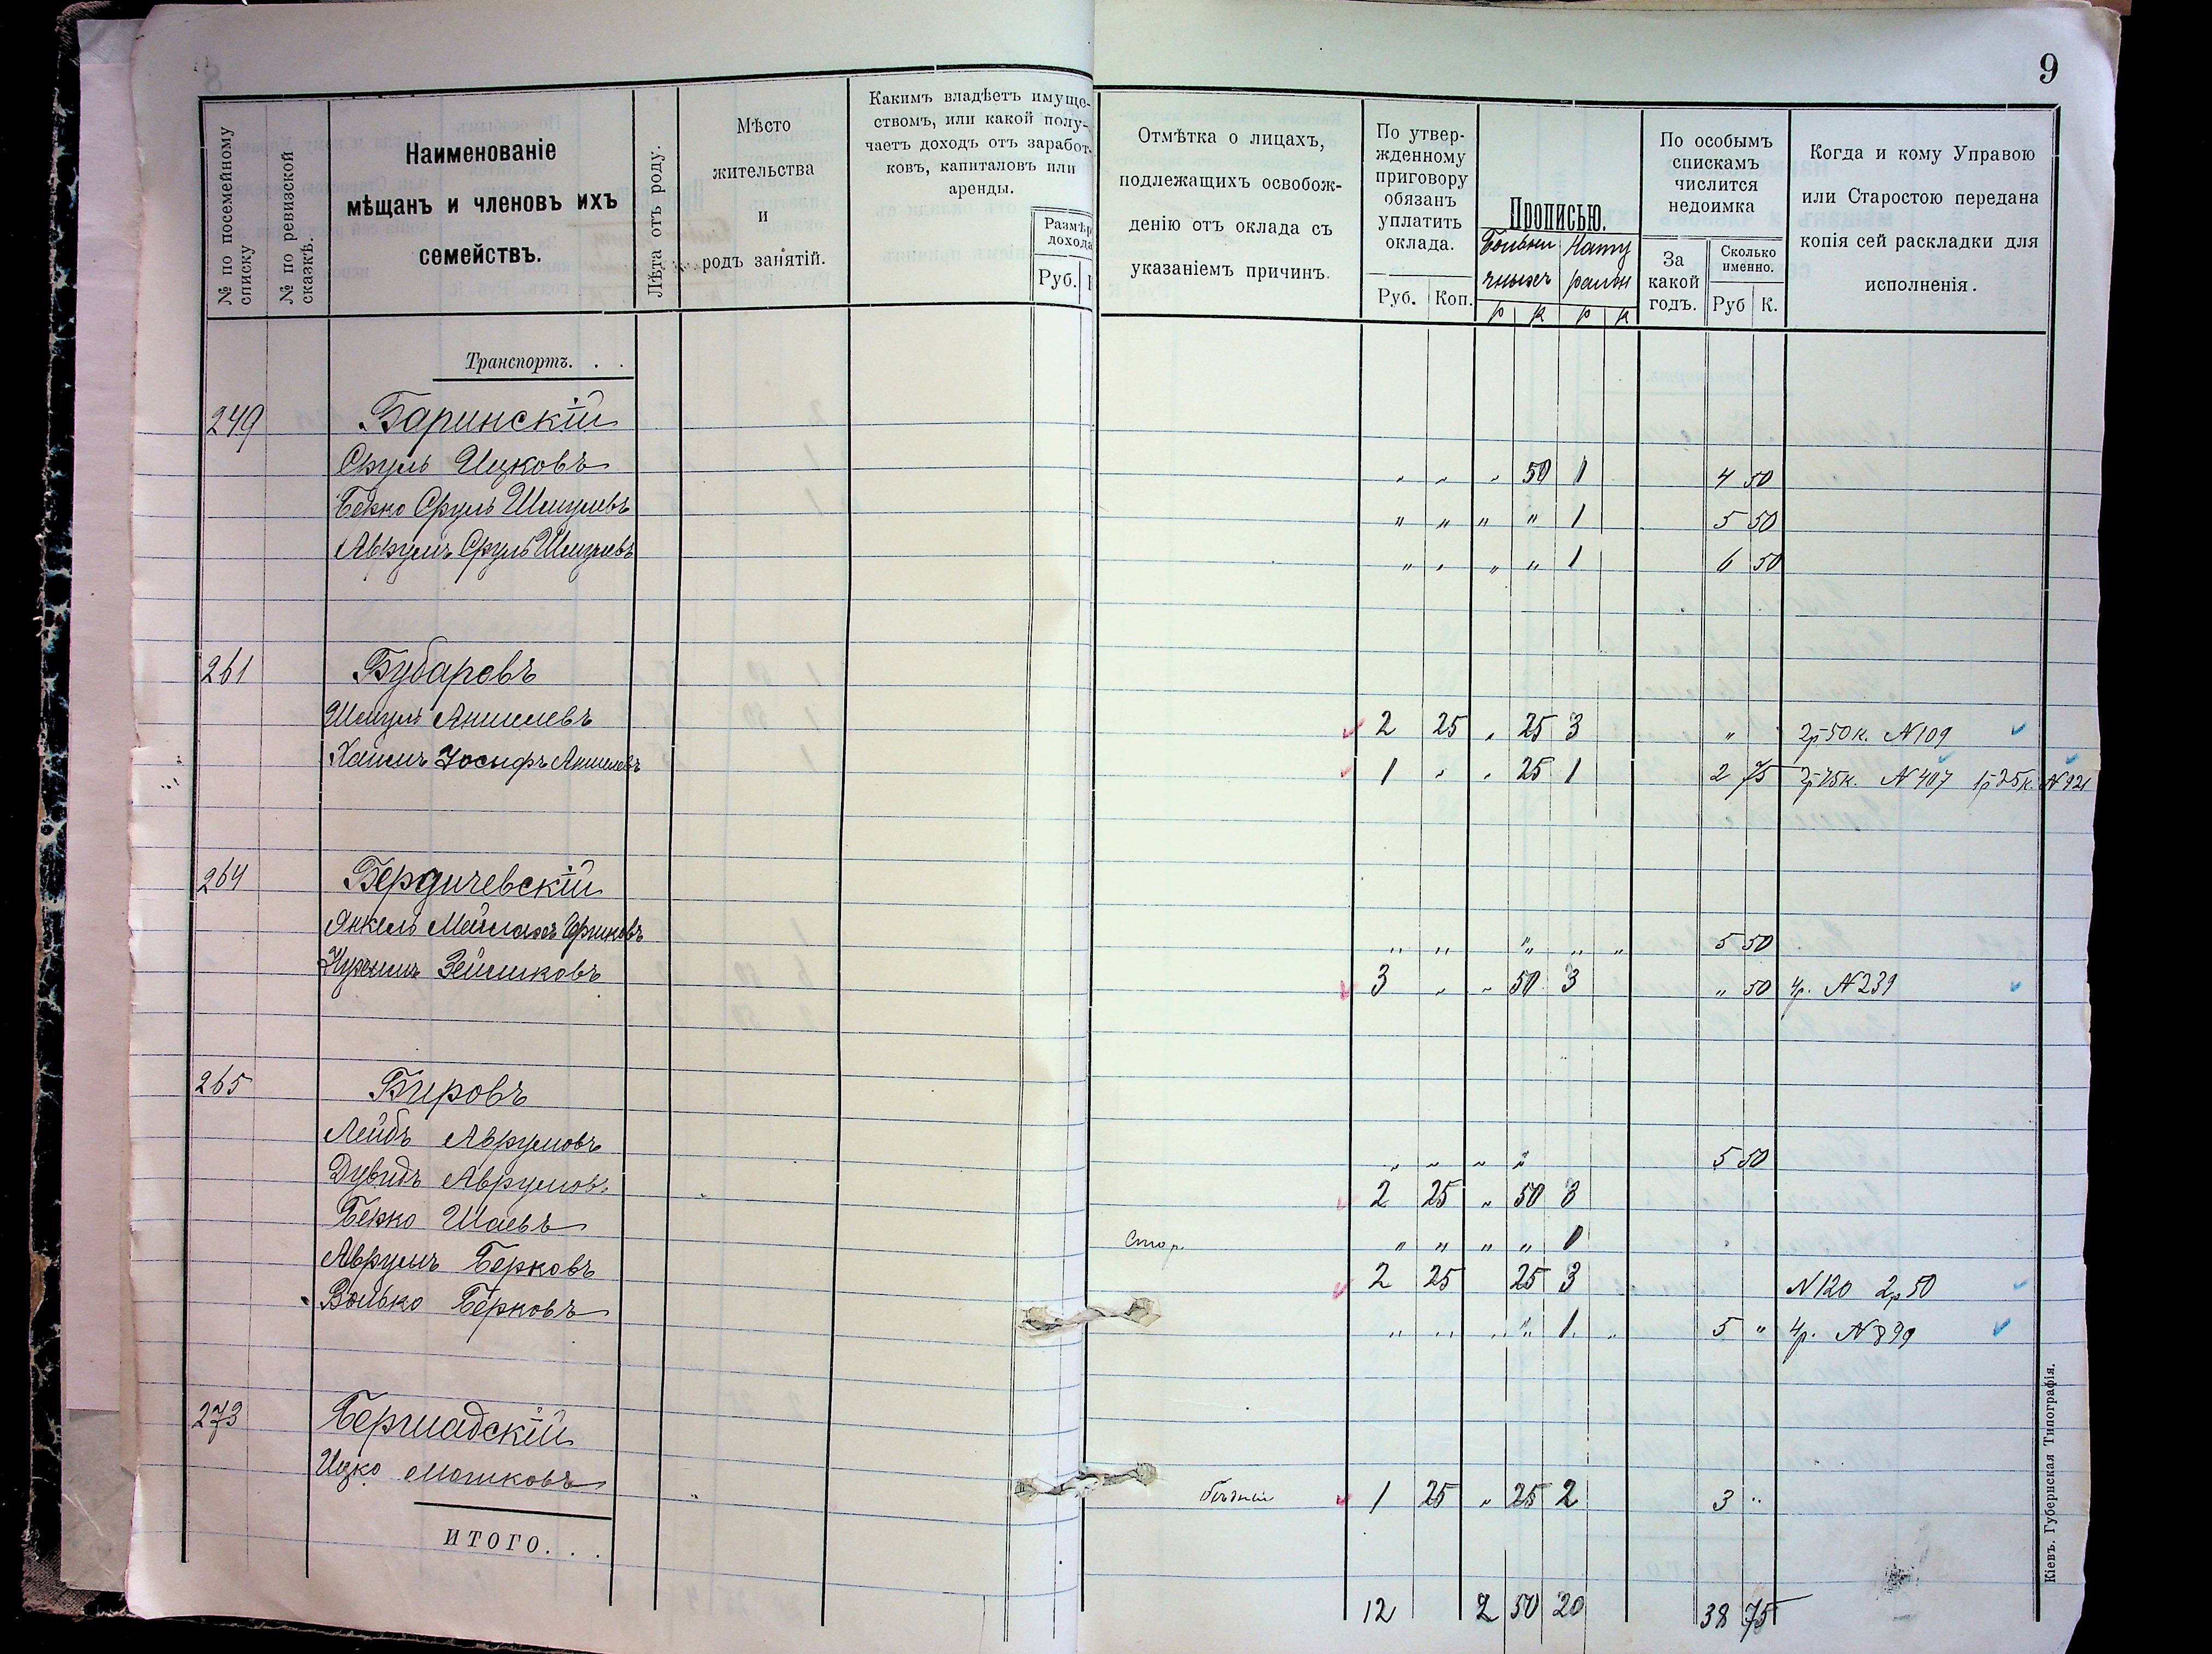 9
№ по посемейному списку
№ по ревизской сказкѣ.
Наименованіе
мѣщанъ и членовъ ихъ
семействъ.
Лѣта отъ роду.
Мѣсто
жительства
и
родъ занятій.
Какимъ владѣетъ имуще-
ствомъ, или какой полу-
чаетъ доходъ отъ заработ-
ковъ, капиталовъ или
аренды.
Размѣр
дохода
Руб.
Отмѣтка о лицахъ,
подлежащихъ освобож-
денію отъ оклада съ
указаніемъ причинъ.
По утвер-
жденному
приговору
обязанъ
уплатить
оклада.
Руб. Коп.
Прописью.
р к р к
По особымъ
спискамъ
числится
недоимка
За
какой
годъ.
Сколько
именно.
Руб К.
Когда и кому Управою
или Старостою передана
копія сей раскладки для
исполненія.
Транспортъ. . .
249 Баринскій
Сруль Ицковъ " " " 50 1 4 50
Берко Сруль Шмулевъ " " " " 1 5 50
Аврумъ Сруль Шмулевъ " " " " 1 6 50
261 Бубаровъ
Шмуль Аншелевъ 2 25 " 25 3 " 2р 50к. N 109
Хаимъ Іосифъ Аншелевъ 1 " " 25 1 2 75 2р 75к. N 407 1р 25к. N 921
264 Бердичевскій
Янкель Мейлахъ " " " " " 5 50
Зейликовъ 3 " " 50 3 " 50 4р. N 239
265 Бировъ
Лейбъ Аврумовъ " " " " 5 50
Дувидъ Аврумов. 2 25 " 50 3
Берко Шаевъ Стар. " " " " 1
Аврумъ Берковъ 2 25 25 3 N 120 2р 50
Волько Берковъ " " " " 1. " 5 " 4р. N 899
273 Бершадскій
Ицко Мошковъ бѣдный 1 25 " 25 2 3 "
ИТОГО. . .
12 2 50 20 38 75
Кіевъ. Губернская Типографія.